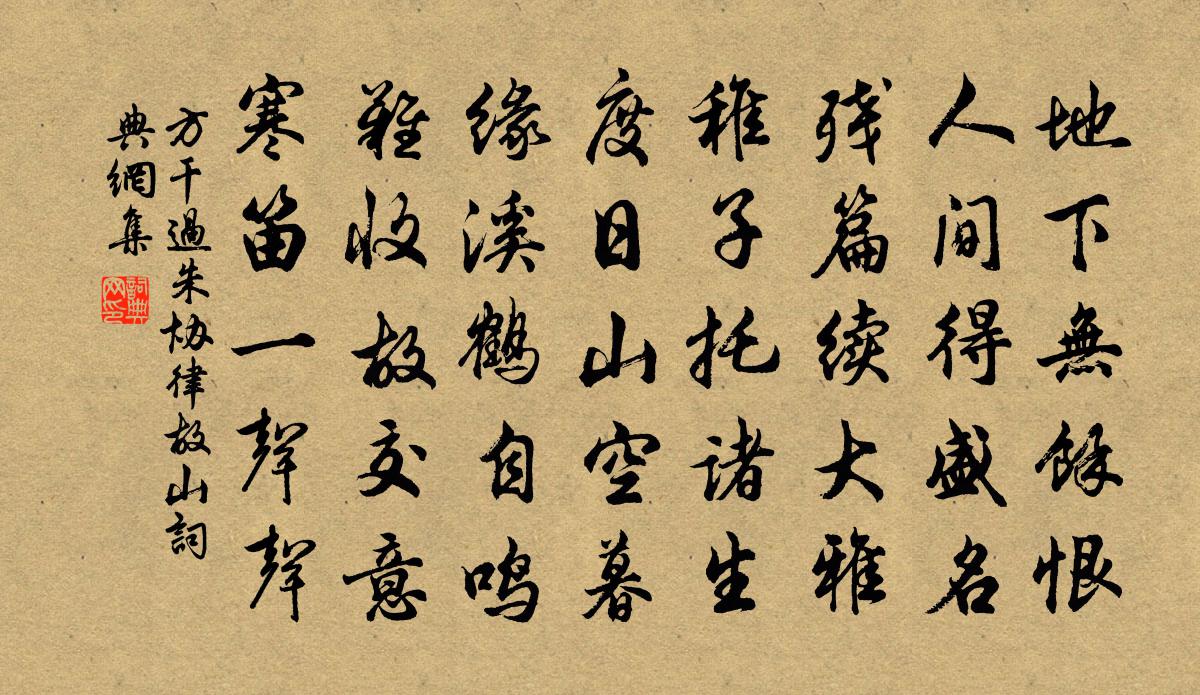 地下無餘恨
人间得盛名
残篇续大雅
稚子托諸生
度日山空暮
缘溪鶴自鸣
難收故交意
寒笛一聲聲
方干過朱协律故山詞
典網集
詞典网印